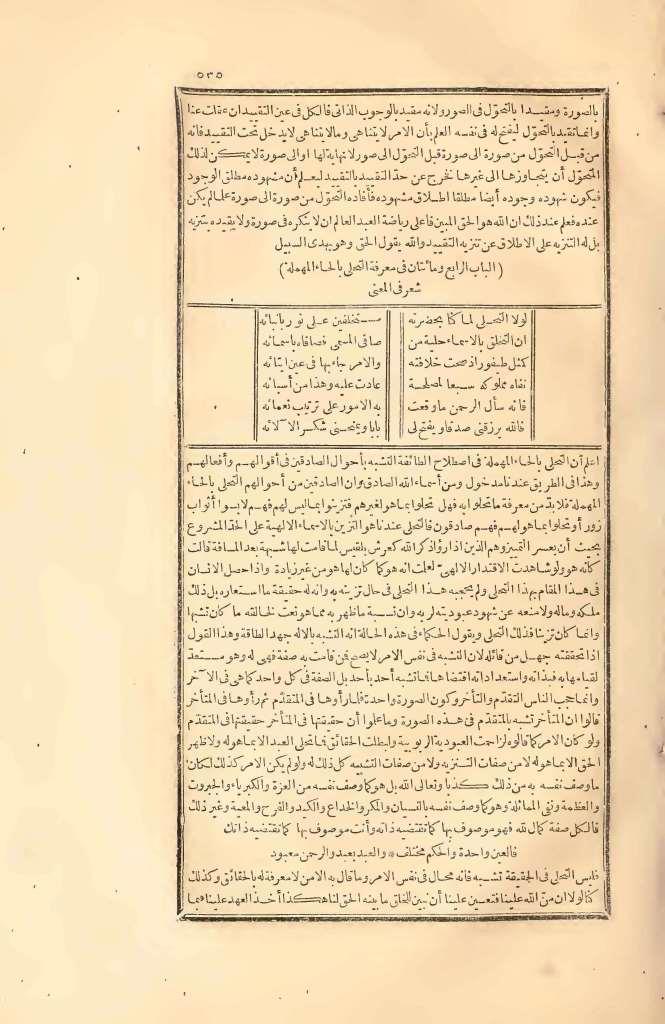 ٥٣٥
بالصورة ومقيدا بالتحوّل فى الصور ولانه مقيد بالوجوب الذاتى فالكل فى عين التقييد ان عقلت عنا
وانما تقيد بالتحوّل ليفتح له فى نفسه العلم بأن الامر لا يتناهى وما لا يتناهى لا يدخل تحت التقييد فانه
من قبل التحوّل من صورة الى صورة قبل التحوّل الى صور لا نهاية لها اوالى صورة لا يمكن لذلك
المتحوّل أن يتجاوزها الى غيرها نخرج عن حدّ التقييد بالتقييد ليعلم أن مشهوده مطلق الوجود
فيكون شهوده وجوده أيضا مطلقا اطلاق مشهوده فأفاده التحوّل من صورة الى صورة علما لم يكن
عنده فعلم عند ذلك ان الله هو الحق المبين فاعلى رياضة العبد العالم ان لا ينكره فى صورة ولا يقيده بتنزيه
بل له التنزيه على الاطلاق عن تنزيه التقييد والله يقول الحق وهو يهدى السبيل
(الباب الرابع ومائتان فى معرفة التحلى بالحاء المهملة)
شعر فى المعنى
لولا التحلى لما كنا بحضرته مستخلفين على نور بانبائه
ان التخلق بالاسماء حلية من صافى المسمى فصافاه باسمائه
كمثل طيفور اذ صحت خلافته والامر جاء بها فى عين ايتائه
نفاه مملوكه سبعا لمصلحة عادت عليه وهذا من أسبائه
فانه سأل الرحمن ما وقعت به الامور على ترتيب نعمائه
فالله يرزقنى صدقا ويفتح لى بابا ويمنحنى شكر الآلائه
اعلم أن التحلى بالحاء المهملة فى اصطلاح الطائفة التشبه بأحوال الصادقين فى أقوالهم وأفعالهم
وهذا فى الطريق عندنا مدخول ومن أسماء الله الصادق وان الصادقين من أحوالهم التحلى بالحاء
المهملة فلا بدّ من معرفة ما تحلوا به فهل تحلوا بما هو لغيرهم فتزينوا بما ليس لهم فهم لابسوا أثواب
زور أو تحلوا بما هو لهم فهم صادقون فالتحلى عندنا هو التزين بالاسماء الالهية على الحدّ المشروع
بحيث أن يعسر التمييز وهم الذين اذا رؤا ذكر الله كعرش بلقيس لما قامت لها شبهة بعد المسافة قالت
كأنه هو ولو شاهدت الاقتدار الالهىّ لعلمت انه هو كما كان لها هو من غير زيادة واذا حصل الانسان
فى هذا المقام بهذا التحلى ولم يحجبه هذا التحلى فى حال تزينه به وانه له حقيقة ما استعاره بل ذلك
ملكه وماله ولا منعه عن شهود عبوديته لربه وان نسبة ما ظهر به مما هو نعت لخالقه ما كان تشبها
وانما كان تزينا فذلك التحلى ويقول الحكماء فى هذه الحالة انه التشبه بالاله جهد الطاقة وهذا القول
اذا تحققته جهل من قائله لان التشبه فى نفس الامر لا يصح فمن قامت به صفة فهى له وهو مستعدّ
لقيامها به فبذاته واستعداد ذاته اقتضاها فما تشبه أحد بأحد بل الصفة فى كل واحد كما هى فى الآخر
وانما حجب الناس التقدّم والتأخر وكون الصورة واحدة فلما رأوها فى المتقدّم ثم رأوها فى المتأخر
قالوا ان المتأخر تشبه بالمتقدّم فى هذه الصورة وما علموا أن حقيقتها فى المتأخر حقيقتها فى المتقدم
ولو كان الامر كما قالوه لزاحمت العبودية الربوبية وابطلت الحقائق فما تحلى العبد الا بما هو له ولا ظهر
الحق الا بما هو له لا من صفات التنزيه ولا من صفات التشبيه كل ذلك له ولو لم يكن الامر كذلك لكان
ما وصف نفسه به من ذلك كذبا وتعالى الله بل هو كما وصف نفسه من العزة والكبرياء والجبروت
والعظمة ونفى المماثلة وهو كما وصف نفسه بالنسيان والمكر والخداع والكيد والفرح والمعية وغير ذلك
فالكل صفة كمال لله فهو موصوف بها كما تقتضيه ذاته وأنت موصوف بها كما تقتضيه ذاتك
فالعين واحدة والحكم مختلف * والعبد يعبد والرحمن معبود
فليس التحلى فى الحقيقة تشبه فانه محال فى نفس الامر وما قال به الا من لا معرفة له بالحقائق وكذلك
كنا لولا ان منّ الله علينا فتعين علينا أن نبين للخلق ما بينه الحق لنا هكذا أخذ العهد علينا فيما